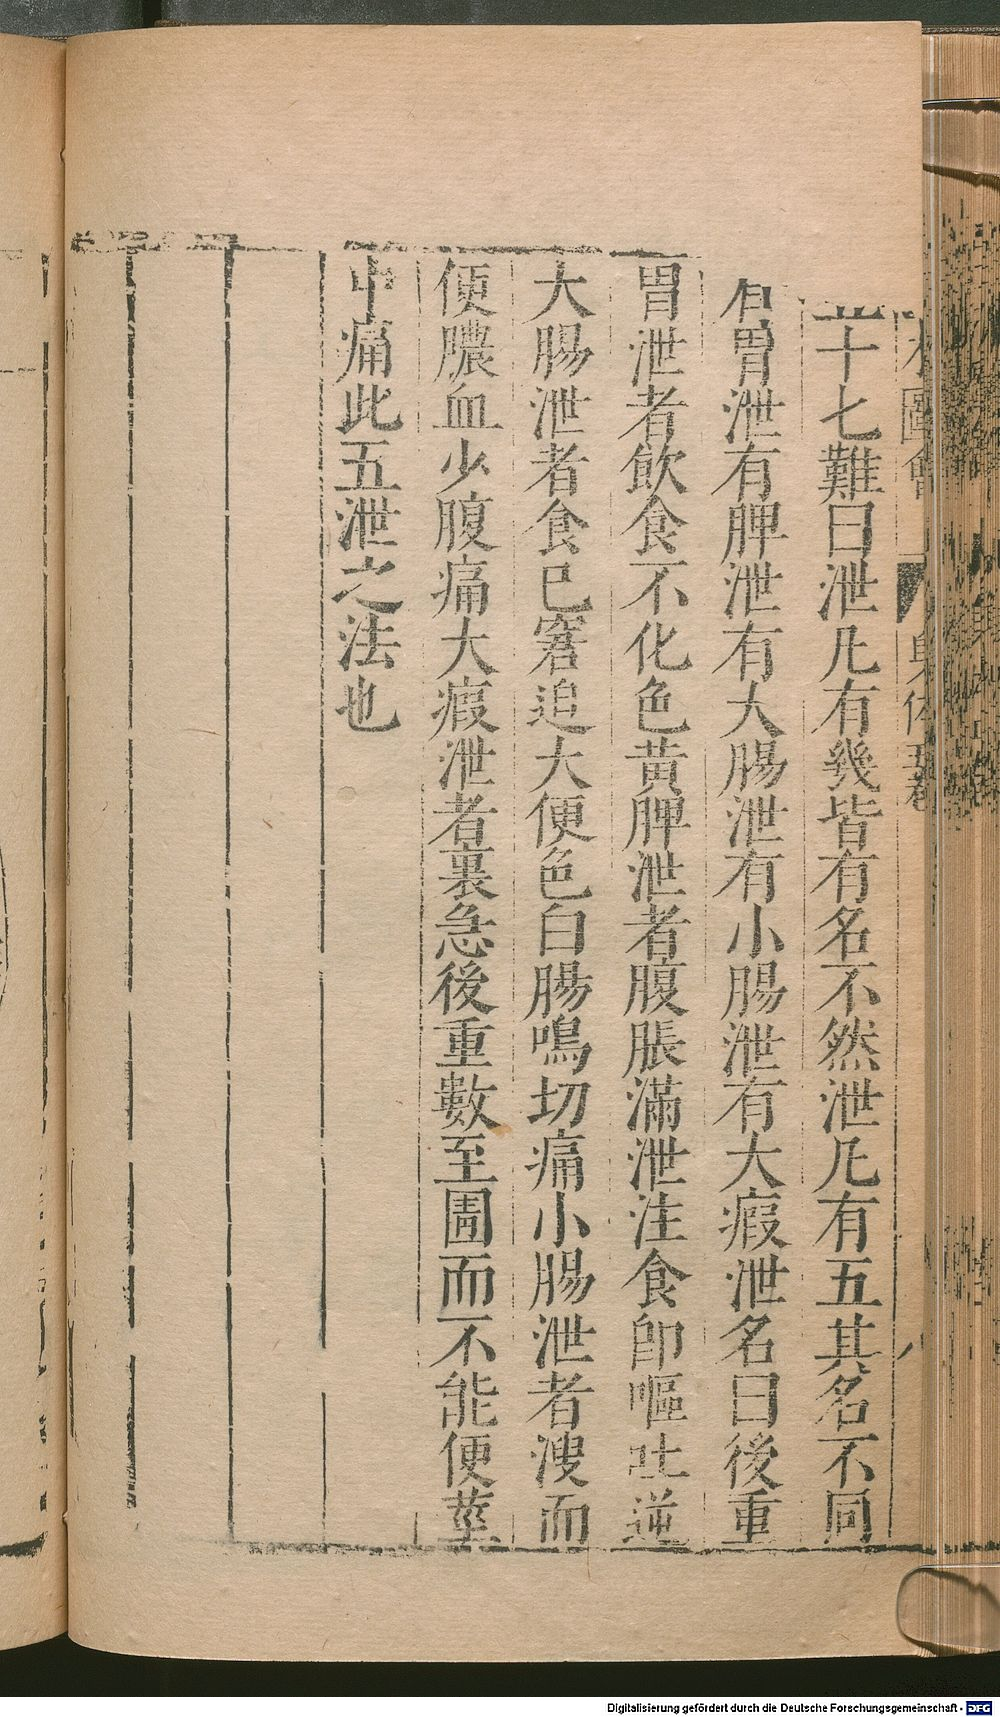 圖會 身体五卷
十七難曰泄凡有幾皆有名不然泄凡有五其名不同
有胃泄有脾泄有大腸泄有小腸泄有大瘕泄名曰後重
胃泄者飲食不化色黃脾泄者腹脹滿泄注食即嘔吐逆
大腸泄者食已窘迫大便色白腸鳴切痛小腸泄者溲而
便膿血少腹痛大瘕泄者裏急後重數至圊而不能便莖
中痛此五泄之法也
Digitalisierung gefördert durch die Deutsche Forschungsgemeinschaft - DFG